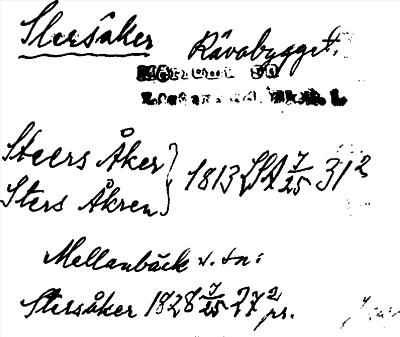 Stersåker Rävabygget.
Steers Åker
Sters Åkren } 1813 LSA 7/25 31²
Mellanbäck v. tn:
Stersåker 1828 7/25 27² pr.